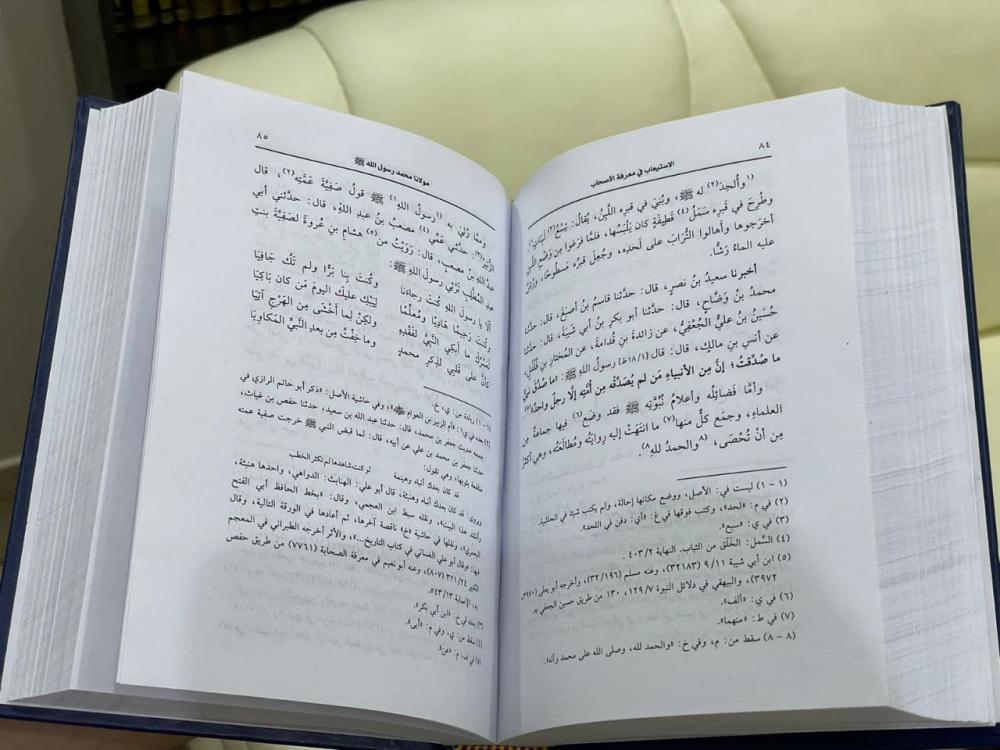 ٨٤
الاستيعاب في معرفة الأصحاب
(١وأُلحِدَ(٢) له ﷺ، وبُنِيَ في قبرِه اللَّبِنُ، يُقالُ: تِسْعُ(٣) لَبِنَاتٍ١)
وطُرِحَ في قبرِه سَمَلُ(٤) قَطيفةٍ كان يَلْبَسُها، فلمَّا فرَغوا مِن وَضْعِ اللَّبِنِ
أخرَجوها وأهالوا التُّرابَ على لَحْدِه، وجُعِل قبرُه مَسْطوحًا، ورُشَّ
عليه الماءُ رَشًّا.
أخبرنا سعيدُ بنُ نصرٍ، قال: حدَّثنا قاسمُ بنُ أصبَغَ، قال: حدَّثنا
محمدُ بنُ وَضَّاحٍ، قال: حدَّثنا أبو بكرِ بنُ أبي شَيْبَةَ، قال: حدَّثنا
حُسَيْنُ بنُ عليٍّ الجُعْفِيُّ، عن زائدةَ بنِ قُدامةَ، عن المختارِ بنِ فُلْفُلٍ،
عن أنسِ بنِ مالكٍ، قال: قال [١/١٨ظ] رسولُ اللهِ ﷺ: «ما صُدِّقَ نبيٌّ
ما صُدِّقتُ؛ إنَّ مِن الأنبياءِ مَن لم يُصَدِّقْه مِن أُمَّتِه إلَّا رجلٌ واحدٌ»(٥)
وأمَّا فَضائلُه وأعلامُ نُبُوَّتِه ﷺ فقد وضَع(٦) فيها جماعةٌ مِن
العلماءِ، وجمَع كلٌّ منها(٧) ما انتَهَتْ إليه رِوايتُه ومُطالَعَتُه، وهي أكثرُ
مِن أنْ تُحْصَى، (٨والحمدُ للهِ٨).
(١ - ١) ليست في: الأصل، ووضع مكانها إحالة، ولم يكتب شيئا في الحاشية.
(٢) في م: «لحد»، وكتب فوقها في غ: «أي: دفن في اللحد».
(٣) في ي: «سبع».
(٤) السَّمل: الخَلَق من الثياب. النهاية ٢/ ٤٠٣.
(٥) ابن أبي شيبة ١١/ ٩ (٣٢١٨٣)، وعنه مسلم (١٩٦/ ٣٢)، وأخرجه أبو يعلى (٣٩٧٠،
٣٩٧٢)، والبيهقي في دلائل النبوة ٧/ ١٢٩، ١٣٠ من طريق حسين الجعفي به.
(٦) في ي: «ألف».
(٧) في ط: «منهما».
(٨ - ٨) سقط من: م، وفي خ: «والحمد لله، وصلى الله على محمد وآله».
٨٥
مولانا محمد رسول الله ﷺ
وممَّا رُثِيَ به (١رسولُ اللهِ١) ﷺ قولُ صَفِيَّةَ عَمَّتِه(٢)، قال
الزُّبَيرُ(٣): حدَّثني عَمِّي(٤) مصعبُ بنُ عبدِ اللهِ، قال: حدَّثني أبي
عبدُ اللهِ بنُ مصعبٍ، قال: رَوَيْتُ من(٥) هشامِ بنِ عروةَ لصَفِيَّةَ بنتِ
عبدِ المُطَّلِبِ تَرْثي رسولَ اللهِ ﷺ:
ألا يا رسولَ اللهِ كُنتَ رجاءَنا وكُنتَ بنا بَرًّا ولم تَكُ جَافِيَا
وكُنتَ رَحيمًا هَادِيًا ومُعلِّمًا لِيَبْكِ عليك اليومَ مَن كان باكِيَا
لَعَمْرُكَ ما أَبكِي النَّبيَّ لفَقْدِهِ ولكِنْ لِما أَخشَى مِن الهَرْجِ آتِيَا
كأنَّ على قَلْبِي لذِكرِ محمدٍ وما خِفْتُ مِن بعدِ النَّبيِّ المَكاوِيَا
(١ - ١) زيادة من: ي، خ.
(٢) بعده في ي١: «أم الزبير بن العوام ﷺ»، وفي حاشية الأصل: «ذكر أبو حاتم الرازي في
جمعه حديث جعفر بن محمد، قال: حدثنا عبد الله بن سعيد، حدثنا حفص بن غياث،
حدثنا جعفر بن محمد بن علي عن أبيه، قال: لما قبض النبي ﷺ خرجت صفية عمته
متلفعة بثوبها، وهي تقول:
قد كان بعدك أنباء وهينمة لو كنت شاهدها لم تكثر الخطب
ويروى: قد كان بعدك أنباء وهنبثة، قال أبو علي: الهنابث: الدواهي، واحدها هنبثة،
وأنشد هذا البيت»، ونقله سبط ابن العجمي، وقال: «بخط الحافظ أبي الفتح
اليعمري»، ونقلها في حاشية «خ» ناقصة آخرها، ثم أعادها في الورقة التالية، وقال
فيها: «قال أبو علي الغساني في كتاب التاريخ...»، والأثر أخرجه الطبراني في المعجم
الكبير ٢٤/ ٣٢١ (٨٠٧)، وعنه أبو نعيم في معرفة الصحابة (٧٧٦١) من طريق حفص
به، الإصابة ١٣/ ٥٤٣.
(٣) بعده في خ: «ابن أبي بكر».
(٤) سقط من: ي، وفي م: «أبي».
(٥) في ف، م: «عن».